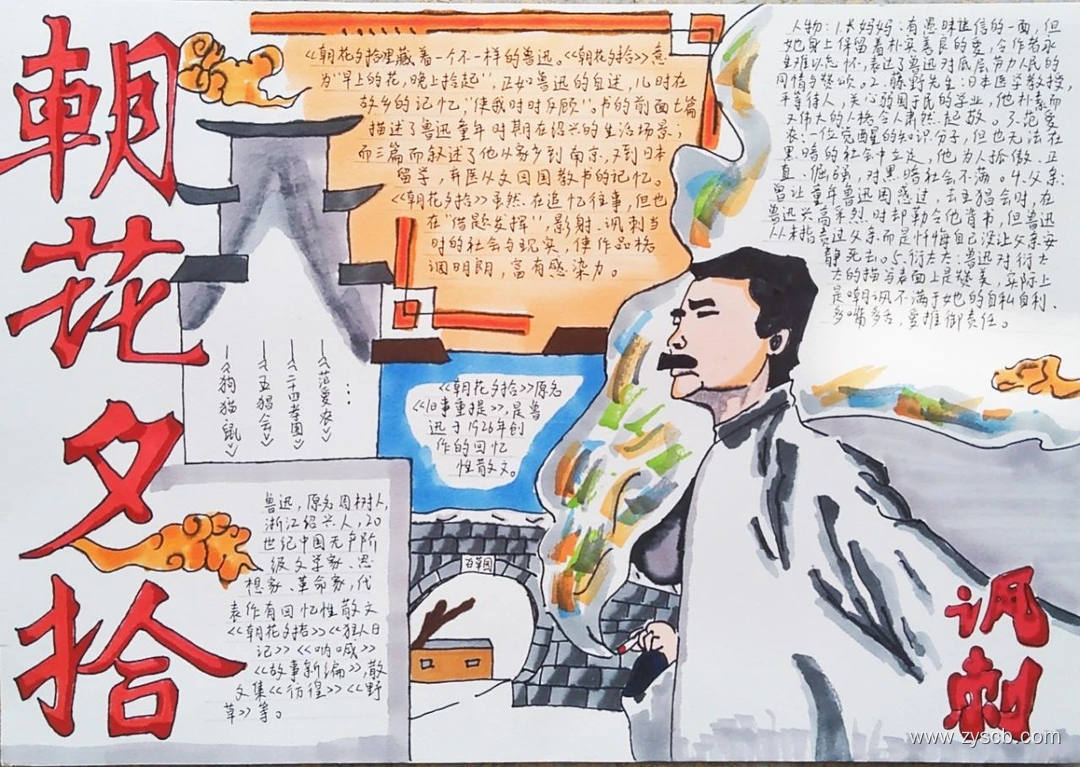 朝花夕拾
《朝花夕拾》里藏着一个不一样的鲁迅。《朝花夕拾》意
为"早上的花,晚上拾起",正如鲁迅的自述,儿时在
故乡的记忆,"使我时时反顾"。书的前面七篇
描述了鲁迅童年时期在绍兴的生活场景;
而三篇而叙述了他从家乡到南京,又到日本
留学,弃医从文回国教书的记忆。
《朝花夕拾》虽然、在追忆往事,但也
在"借题发挥",影射、讽刺当
时的社会与现实,使作品格
调明朗,富有感染力。
人物:1.长妈妈:有愚昧迷信的一面,但
她身上保留着朴实善良的爱,令作者永
生难以忘怀,表达了鲁迅对底层劳力人民的
同情与赞颂。2.藤野先生:日本医学教授,
平等待人,关心弱国子民的学业,他朴素而
又伟大的人格令人肃然起敬。3.范爱
农:一位觉醒的知识分子,但也无法在
黑暗的社会中立足,他为人孤傲、正
直、倔强,对黑暗社会不满。4.父亲:
曾让童年鲁迅困惑过,去五猖会时,在
鲁迅兴高采烈时却勒令他背书,但鲁迅
从未指责过父亲而是忏悔自己没让父亲安
静死去。5.衍太太:鲁迅对衍太
太的描写表面上是赞美,实际上
是嘲讽不满于她的自私自利、
多嘴多舌,爱推卸责任。
《狗猫鼠》
《五猖会》
《二十四孝图》
《范爱农》
……
《朝花夕拾》原名
《旧事重提》,是鲁
迅于1926年创
作的回忆
性散文。
鲁迅,原名周树人,
浙江绍兴人,20
世纪中国无产阶
级文学家、思
想家、革命家,代
表作有回忆性散文
《朝花夕拾》《狂人日
记》《呐喊》
《故事新编》,散
文集《彷徨》《野
草》等。
百草园
讽刺
www.zyscb.com